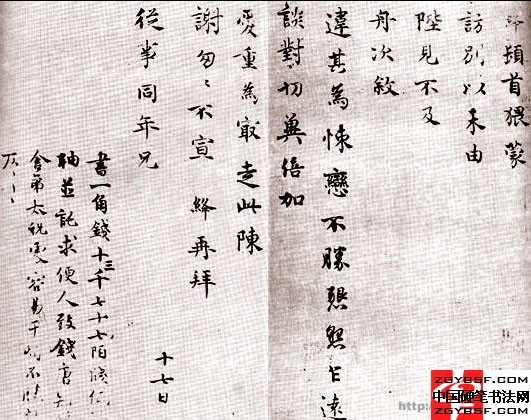 頓首猥蒙
訪別以未由
陛見不及
舟次敘
違其為悚戀不勝懇懇乞遠
談對切冀倍加
愛重為冣走此陳
謝匆匆不宣 絳再拜
十七日
從事同年兄
書一角錢十三千七十七陌
軸並託求便人致錢唐
舍弟太祝處容易干煩不
ZGYBSF.COM
中国硬笔书法网
ZGYBSF.COM
http://